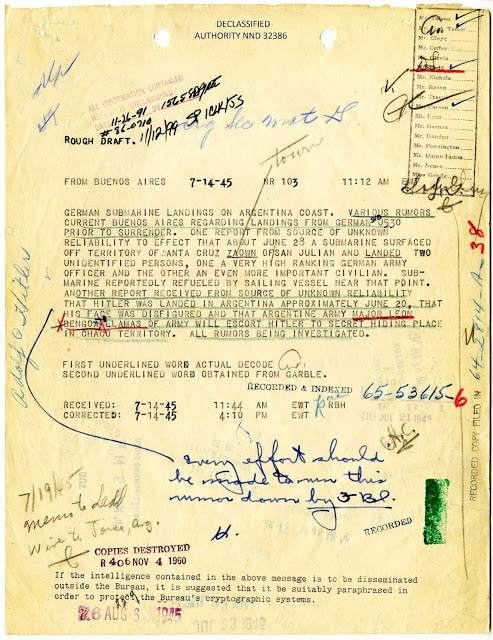 DECLASSIFIED
AUTHORITY NND 32386
Mr. Clegg
Mr. Coffey
Mr. Nichols
Mr. Rosen
Mr. Egan
Mr. Hendon
Mr. Pennington
Mr. Quinn Tamm
Mr. Nease
Miss Gandy
ALL INFORMATION CONTAINED
11-26-91
#86-0710
11/12/99
ROUGH DRAFT.
town
FROM BUENOS AIRES 7-14-45 NR 103 11:12 AM EWT
GERMAN SUBMARINE LANDINGS ON ARGENTINA COAST. VARIOUS RUMORS
CURRENT BUENOS AIRES REGARDING LANDINGS FROM GERMAN SUB 0530
PRIOR TO SURRENDER. ONE REPORT FROM SOURCE OF UNKNOWN
RELIABILITY TO EFFECT THAT ABOUT JUNE 28 A SUBMARINE SURFACED
OFF TERRITORY OFSANTA CRUZ ZAOWN OFSAN JULIAN AND LANDED TWO
UNIDENTIFIED PERSONS, ONE A VERY HIGH RANKING GERMAN ARMY
OFFICER AND THE OTHER AN EVEN MORE IMPORTANT CIVILIAN. SUB-
MARINE REPORTEDLY REFUELED BY SAILING VESSEL NEAR THAT POINT.
ANOTHER REPORT RECEIVED FROM SOURCE OF UNKNOWN RELIABILITY
THAT HITLER WAS LANDED IN ARGENTINA APPROXIMATELY JUNE 20, THAT
HIS FACE WAS DISFIGURED AND THAT ARGENTINE ARMY MAJOR LEON
BENGOA LLAMAS OF ARMY WILL ESCORT HITLER TO SECRET HIDING PLACE
IN CHACO TERRITORY. ALL RUMORS BEING INVESTIGATED.
FIRST UNDERLINED WORD ACTUAL DECODE
SECOND UNDERLINED WORD OBTAINED FROM GARBLE.
RECORDED & INDEXED
65-53615-6
RECEIVED: 7-14-45 11:44 AM EWT RBH
CORRECTED: 7-14-45 4:10 PM EWT
JUL 21 1945
Adolf Hitler
Every effort should
be made to run this
rumor down by FBI.
H.
RECORDED
7/19/45
memo to Legal
Wire to Joice, Arg.
COPIES DESTROYED
R 406 NOV 4 1960
If the intelligence contained in the above message is to be disseminated
outside the Bureau, it is suggested that it be suitably paraphrased in
order to protect the Bureau's cryptographic systems.
76 AUG 3 1945
RECORDED COPY FILED IN 64-2814-A-38